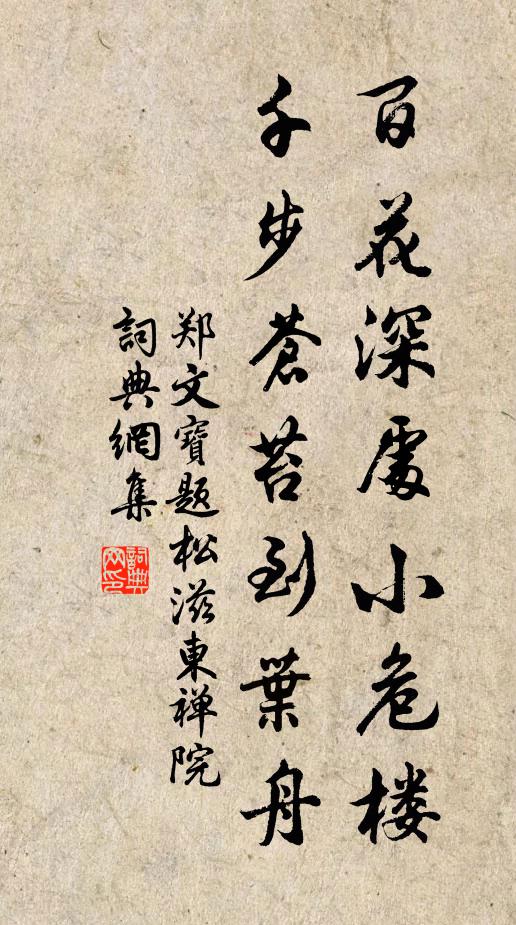 百花深處小危楼
千步蒼苔到葉舟
郑文寶題松滋東禅院
詞典網集
詞典网印